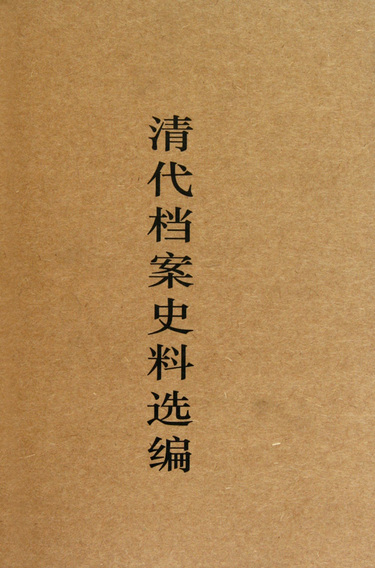 清代档案史料选编